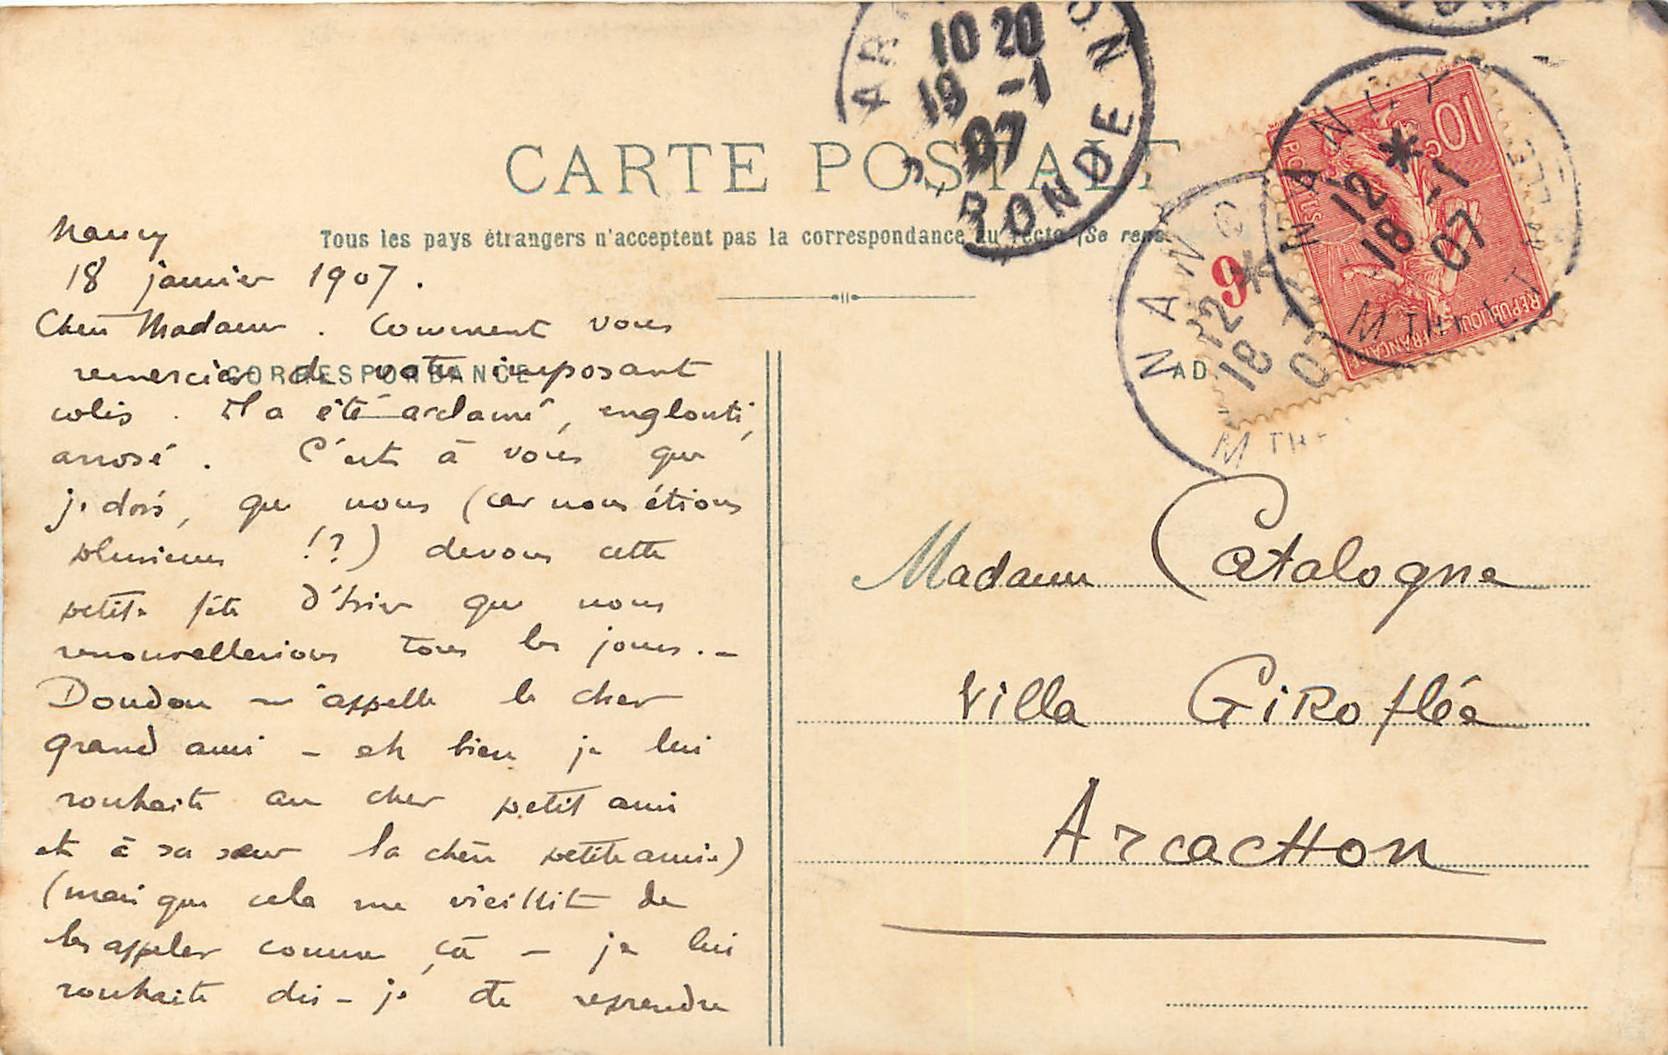 CARTE POSTALE
Tous les pays étrangers n'acceptent pas la correspondance au recto (Se rens
CORRESPONDANCE
AD
Nancy
18 janvier 1907.
Chère Madame. Comment vous
remercier de votre imposant
colis. Il a été acclamé, englouti,
arrosé. C'est à vous que
je dois, que nous (car nous étions
plusieurs !?) devons cette
petite fête d'hier que nous
renouvellerions tous les jours. –
Doudou m'appelle le cher
grand ami – eh bien je lui
souhaite au cher petit ami
et à sa sœur la chère petite amie)
(mais que cela me vieillit de
les appeler comme ça – je lui
souhaite dis-je de reprendre
Madame Catalogne
Villa GiRoflée
ArcacHon
10 20
19 -1
07
GIRONDE
NANCY
12 *
18 -1
07
MTHE ET MLLE
NANCY
12 *
18
07
M THE
9
10c
POSTES
REPUBLIQUE FRANCAISE